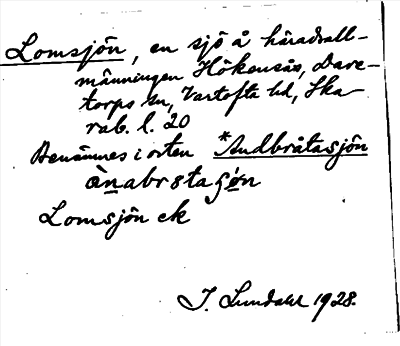 Lomsjön, en sjö å häradsall-
männingen Hökensås, Dare-
torps sn, Vartofta hd, Ska-
rab. l. 20
Benämnes i orten *Andbråtasjön
ànabrstaʃøn
Lomsjön ek
J. Lundahl 1928.